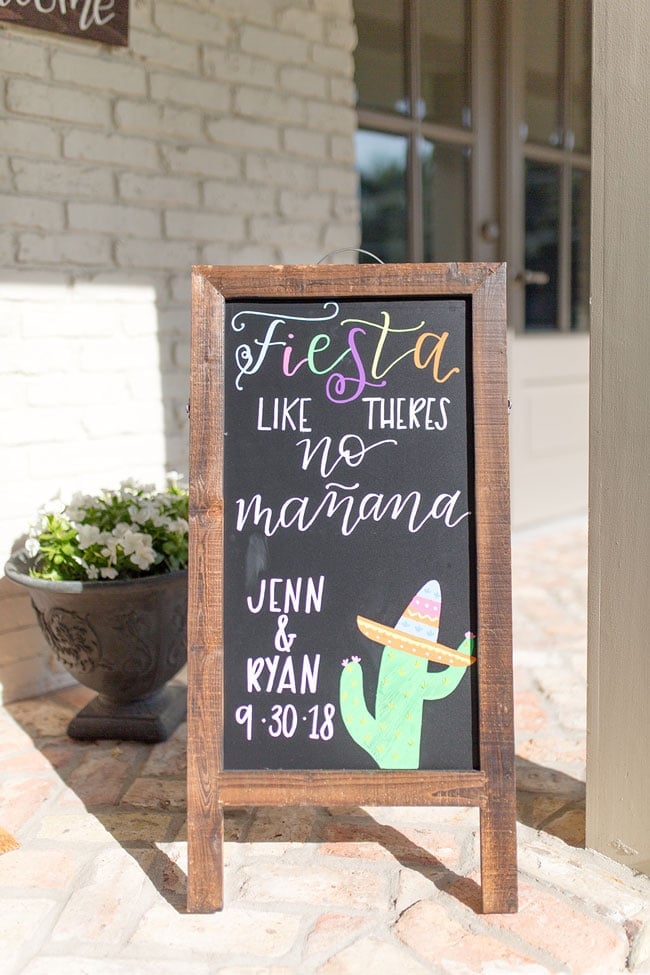 ome
Fiesta
LIKE THERES
no
mañana
JENN
&
RYAN
9·30·18